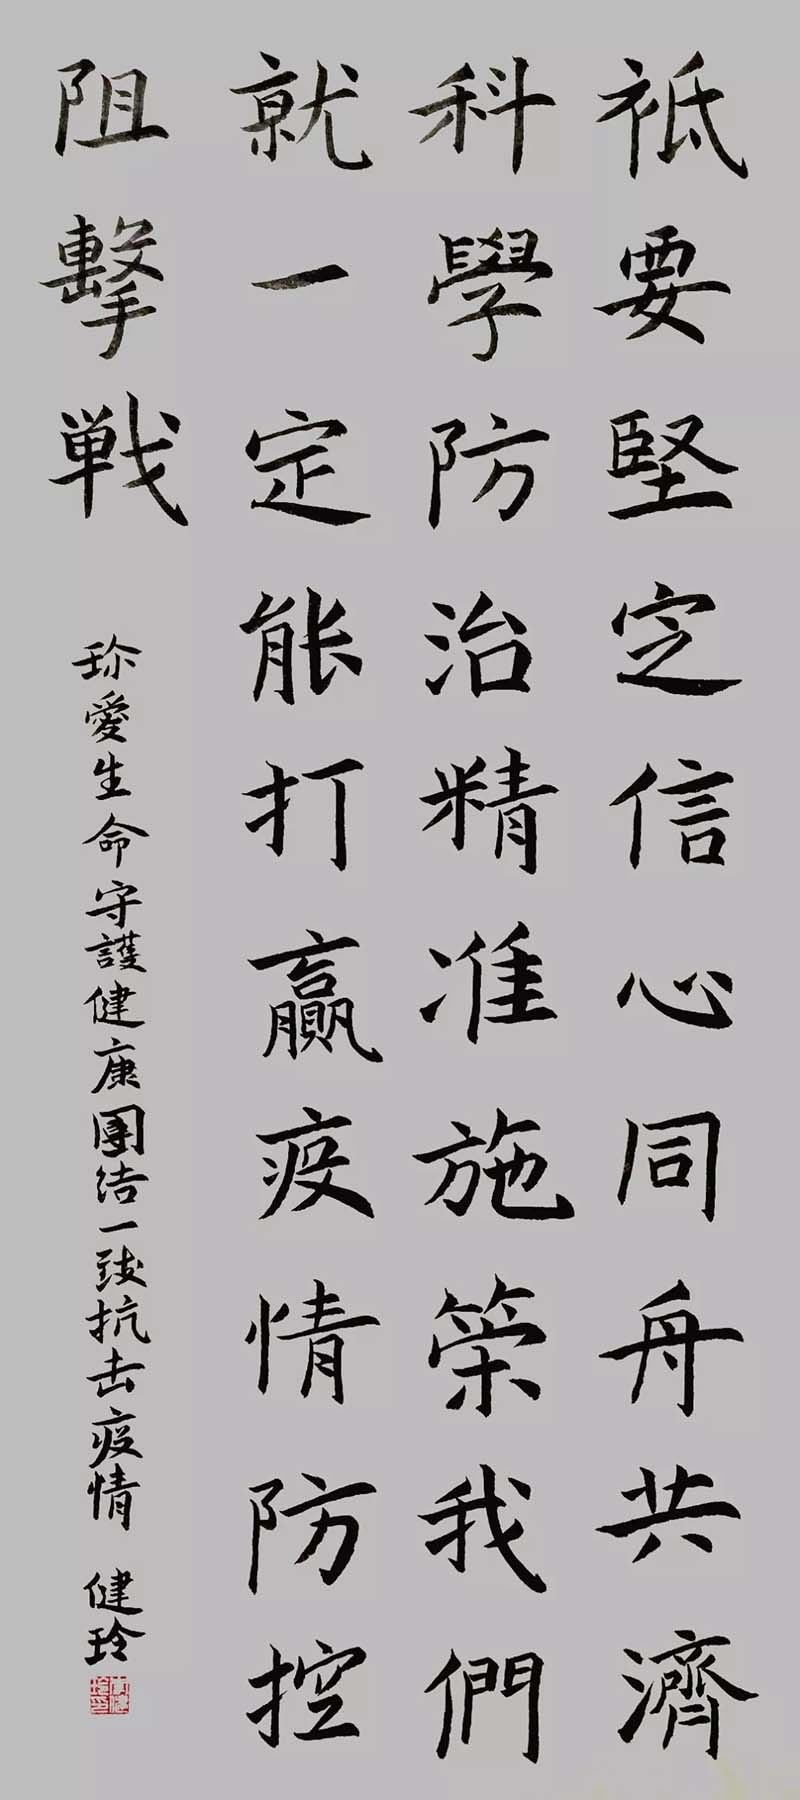 祇要堅定信心同舟共濟
科學防治精准施策我們
就一定能打贏疫情防控
阻擊戦
珎愛生命守護健康團结一致抗击疫情 健玲